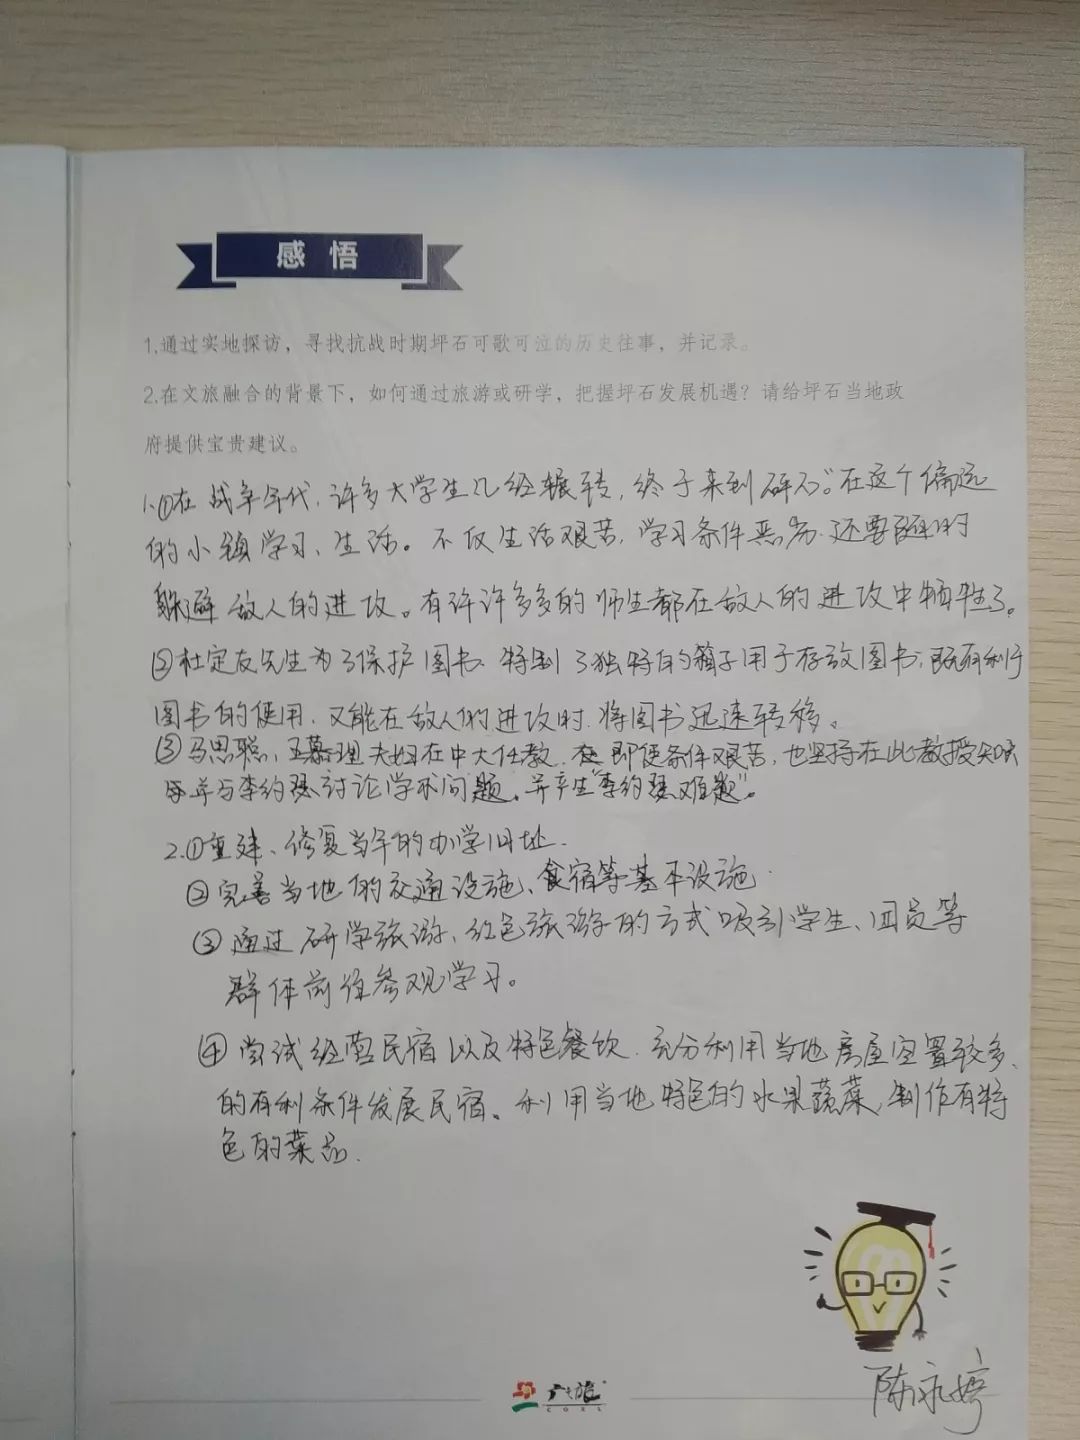 感 悟
1.通过实地探访，寻找抗战时期坪石可歌可泣的历史往事，并记录。
2.在文旅融合的背景下，如何通过旅游或研学，把握坪石发展机遇？请给坪石当地政
府提供宝贵建议。
1.①在战争年代，许多大学生几经辗转，终于来到砰石。在这个偏远
的小镇学习、生活。不仅生活艰苦，学习条件恶劣，还要随时
躲避敌人的进攻。有许许多多的师生都在敌人的进攻中牺牲了。
②杜定友先生为了保护图书，特制了独特的箱子用于存放图书，既有利于
图书的使用，又能在敌人的进攻时，将图书迅速转移。
③马思聪、王慕理夫妇在中大任教，即便条件艰苦，也坚持在此教授知识
并与李约瑟讨论学术问题。并产生“李约瑟难题”。
2.①重建、修复当年的办学旧址.
②完善当地的交通设施、食宿等基本设施.
③通过研学旅游、红色旅游的方式吸引学生、团员等
群体前往参观学习。
④尝试经营民宿以及特色餐饮，充分利用当地房屋空置较多，
的有利条件发展民宿。利用当地特色的水果蔬菜，制作有特
色的菜品.
广之旅
GZRL
陈永婷